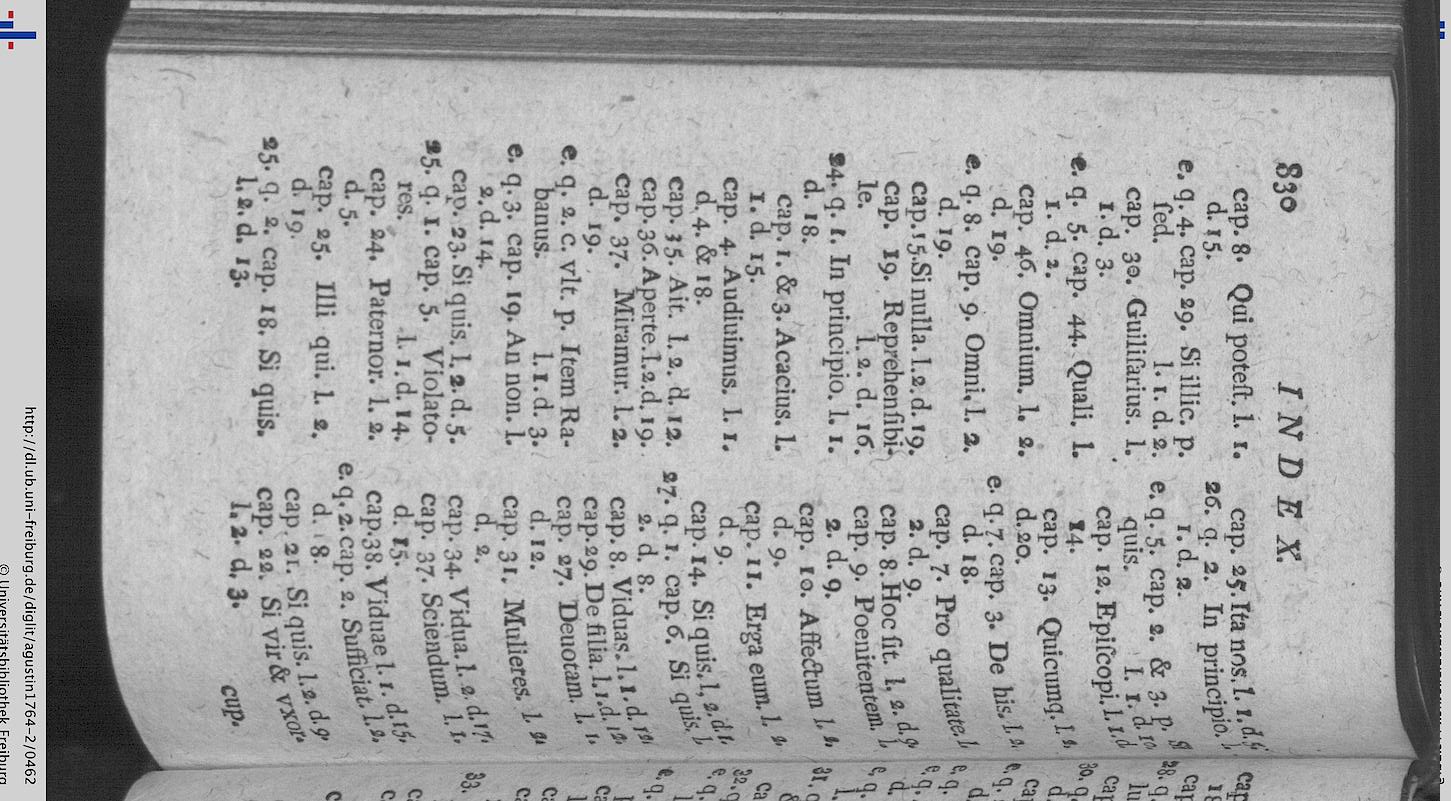 830 INDEX.
cap. 8. Qui poteſt. l. 1.
d. 15.
e. q. 4. cap. 29. Si illic. p.
ſed. l. 1. d. 2.
cap. 30. Guiliſarius. l.
1. d. 3.
e. q. 5. cap. 44. Quali. l.
1. d. 2.
cap. 46. Omnium. l. 2.
d. 19.
e. q. 8. cap. 9. Omni. l. 2.
d. 19.
cap. 15. Si nulla. l. 2. d. 19.
cap. 19. Reprehenſibi-
le. l. 2. d. 16.
24. q. 1. In principio. l. 1.
d. 18.
cap. 1. & 3. Acacius. l.
1. d. 15.
cap. 4. Audiuimus. l. 1.
d. 4. & 18.
cap. 35. Ait. l. 2. d. 12.
cap. 36. Aperte. l. 2. d. 19.
cap. 37. Miramur. l. 2.
d. 19.
e. q. 2. c. vlt. p. Item Ra-
banus. l. 1. d. 3.
e. q. 3. cap. 19. An non. l.
2. d. 14.
cap. 23. Si quis. l. 2. d. 5.
25. q. 1. cap. 5. Violato-
res. l. 1. d. 14.
cap. 24. Paternor. l. 2.
d. 5.
cap. 25. Illi qui. l. 2.
d. 19.
25. q. 2. cap. 18. Si quis.
l. 2. d. 13.
cap. 25. Ita nos. l. 1. d.
26. q. 2. In principio.
1. d. 2.
e. q. 5. cap. 2. & 3. p.
quis. l. 1. d.
14.
cap. 12. Epiſcopi. l. 1. d
cap. 13. Quicumq. l. 2.
d. 20.
e. q. 7. cap. 3. De his. l. 2.
d. 18.
cap. 7. Pro qualitate. l
2. d. 9.
cap. 8. Hoc ſit. l. 2. d. 9
cap. 9. Poenitentem. l.
2. d. 9.
cap. 10. Affectum l. 2.
d. 9.
cap. 11. Erga eum. l. 2.
d. 9.
cap. 14. Si quis. l. 2. d. 1.
27. q. 1. cap. 6. Si quis. l.
2. d. 8.
cap. 8. Viduas. l. 1. d. 12.
cap. 29. De filia. l. 1. d. 12.
cap. 27. Deuotam. l. 1.
d. 12.
cap. 31. Mulieres. l. 2.
d. 2.
cap. 34. Vidua. l. 2. d. 17.
cap. 37. Sciendum. l. 1.
d. 15.
cap. 38. Viduae l. 1. d. 15.
e. q. 2. cap. 2. Sufficiat. l. 2.
d. 8.
cap. 21. Si quis. l. 2. d. 9.
cap. 22. Si vir & vxor.
l. 2. d. 3.
cup.
http://dl.ub.uni-freiburg.de/diglit/agustin1764-2/0462
© Universitätsbibliothek Freiburg